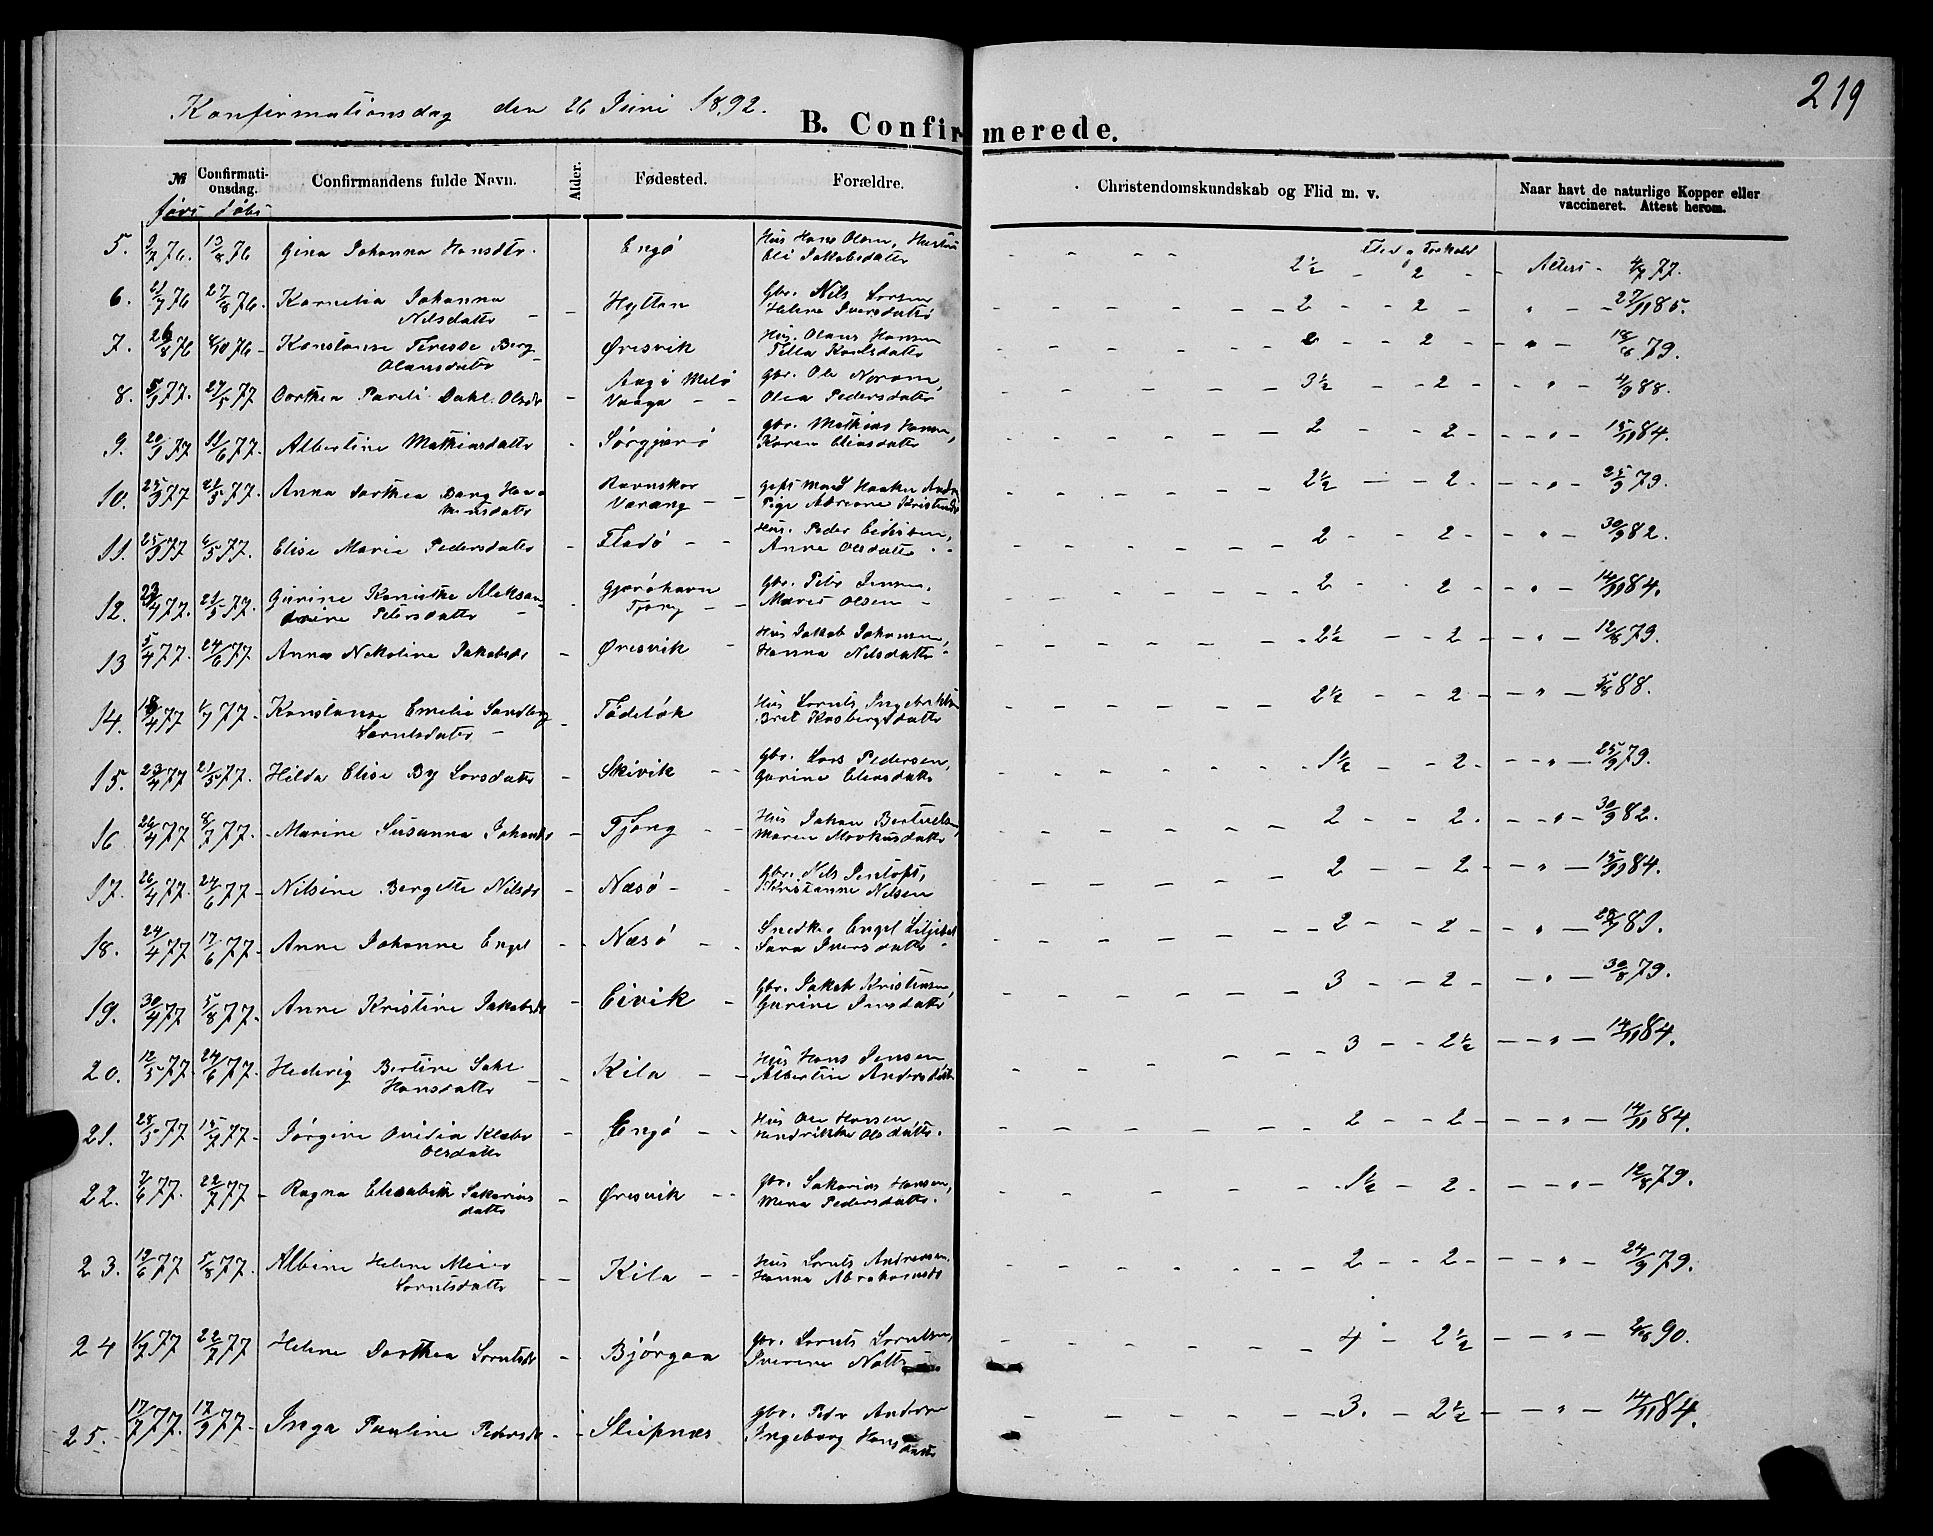 219
Konfirmationsdag den 26 Juni 1892.
B. Confirmerede.
№ Confirmationsdag. Confirmandens fulde Navn. Alder. Fødested. Forældre. Christendomskundskab og Flid m. v. Naar havt de naturlige Kopper eller vaccineret. Attest herom.
føds døbs
Flid og Forhold
5. 9/7 76. 13/8 76 Gina Johanna Hansdtr. Engö Hus Hans Olsen, Hustru Eli Jakobsdatter 2½ - 2 - - Attest - 4/9 77.
6. 21/7 76 27/8 76. Kornelia Johanna Nilsdatter Hytten Gbr. Nils Larsen Helene Iversdatter 2 - - 2 " - 27/11 85.
7. 26/8 76 8/10 76 - Konstanse Terese Berg Olausdatter Øresvik Hus. Olaus Hansen Karlsdatter 2 - - 2 - - " - 18/8 79.
8. 5/3 77. 27/5 77 Dorthea Pareli Dahl Olsdr Meló Vaaga Gbr. Ole Olea Pedersdatter 3½ - - 2 - - " - 4/9 88.
9. 20/3 77 11/6 77. Albertine Mathiasdatter - Sörgjærö Gbr. Mathias Hansen, Karen Eliasdatter 2 - - 2 - - - " - 15/11 84.
10. 25/3 77 21/5 77. Anna Dorthea Dang Varang - - Haaken Pige Kristensd 2½ - - 2 - - - " - 25/9 79.
11. 25/3 77 6/5 77. Elise Marie Pedersdatter - Flodö - - Hus. Peder Anne Olsdatter 2 - - 2 - - " - 30/9 82.
12. 23/4 77. 21/5 77. Gurine Aleksandrine Petersdatter - Gjæröhavn Tjong - - Gbr. Peter Jensen, Maret Olsen - 2 - - 2 - - " - 14/11 84.
13 5/4 77. 24/6 77 Anna Nekoline Jakobsdr - Øresvik - - Hus Jakob Johansen, Hanna Nilsdatter 2½ - - 2 - - " - 12/8 79.
14. 18/4 77 1/7 77 - Konstanse Emelie Sandberg Lorntsdatter - Hus Lornts Ingebriktsen Bret Kasbergsdatter 2½ - - 2 - - " - 5/8 88.
15. 23/4 77 21/5 77. Hilda Elise By Larsdatter - Skivik - - Gbr. Lars Pedersen, Gurine Elersdatter 1½ - - 2 - - - " - 25/9 79.
16 26/4 77 8/7 77. - Marine Susanna Johansdr - Tjong - - Hus Johan Bertelsen, Maren Markusdatter 2 - - 2. - - " - 30/9 82.
17. 26/4 77. 24/6 77 - Nilsine Bergette Nilsdr - Næsö - - Gbr. Nils Kristianne Nilsen 2 - - 2 - - " - 15/11 84.
18. 24/4 77 17/6 77 - Anne Johanne Engel - - Næsö - - Snedker Engel Sara Iversdatter 2 - - 2 - " - 81.
19. 30/4 77 5/8 77. - Anne Kristine Jakobsdr - Eivik - Gbr. Jakob Kristensen, Gurine Jensdatter 3 - - 2 - - " - 30/8 79.
20. 12/5 77 24/6 77. Hedevig Bertine Dahl Hansdatter - - Kila - - Hus Hans Jensen Albertine Andersdatter 3 - - 2½ - - " - 14/11 84.
21. 28/5 77 15/7 77 - Jörgine Ovidia Klæbo Olsdatter - Engö - - Hus Ole Hansen Hendrikke Olsdatter. 2 - - 2 - - - " - 14/11 84.
22. 7/6 77. 22/7 77 - Ragna Elisabeth Sakariasdatter - Øresvik - - Gbr. Sakarias Hansen, Mina Pedersdatter. 1½ - 2 - - - " - 12/8 79.
23. 19/6 77 5/8 77. Albine Helene Meier Lorntsdatter - - Kila - - Hus Lornts Andreasen Hanna Abrahamsdr 2 - - 2 - - - " - 24/9 79.
24 1/7 77 22/7 77 Helene Dorthea Lorntsdr - - Bjørgaa Gbr. Lornts Lorntsen, Iverine 4 - 2½ - - " - 2/8 90.
25. 17/7 77. 17/9 77 - Inga Pauline Pedersdr - - Sleipnæs Gbr. Peder Andersen Ingeborg Hansdatter 3. - 2½ - - " - 14/11 84.